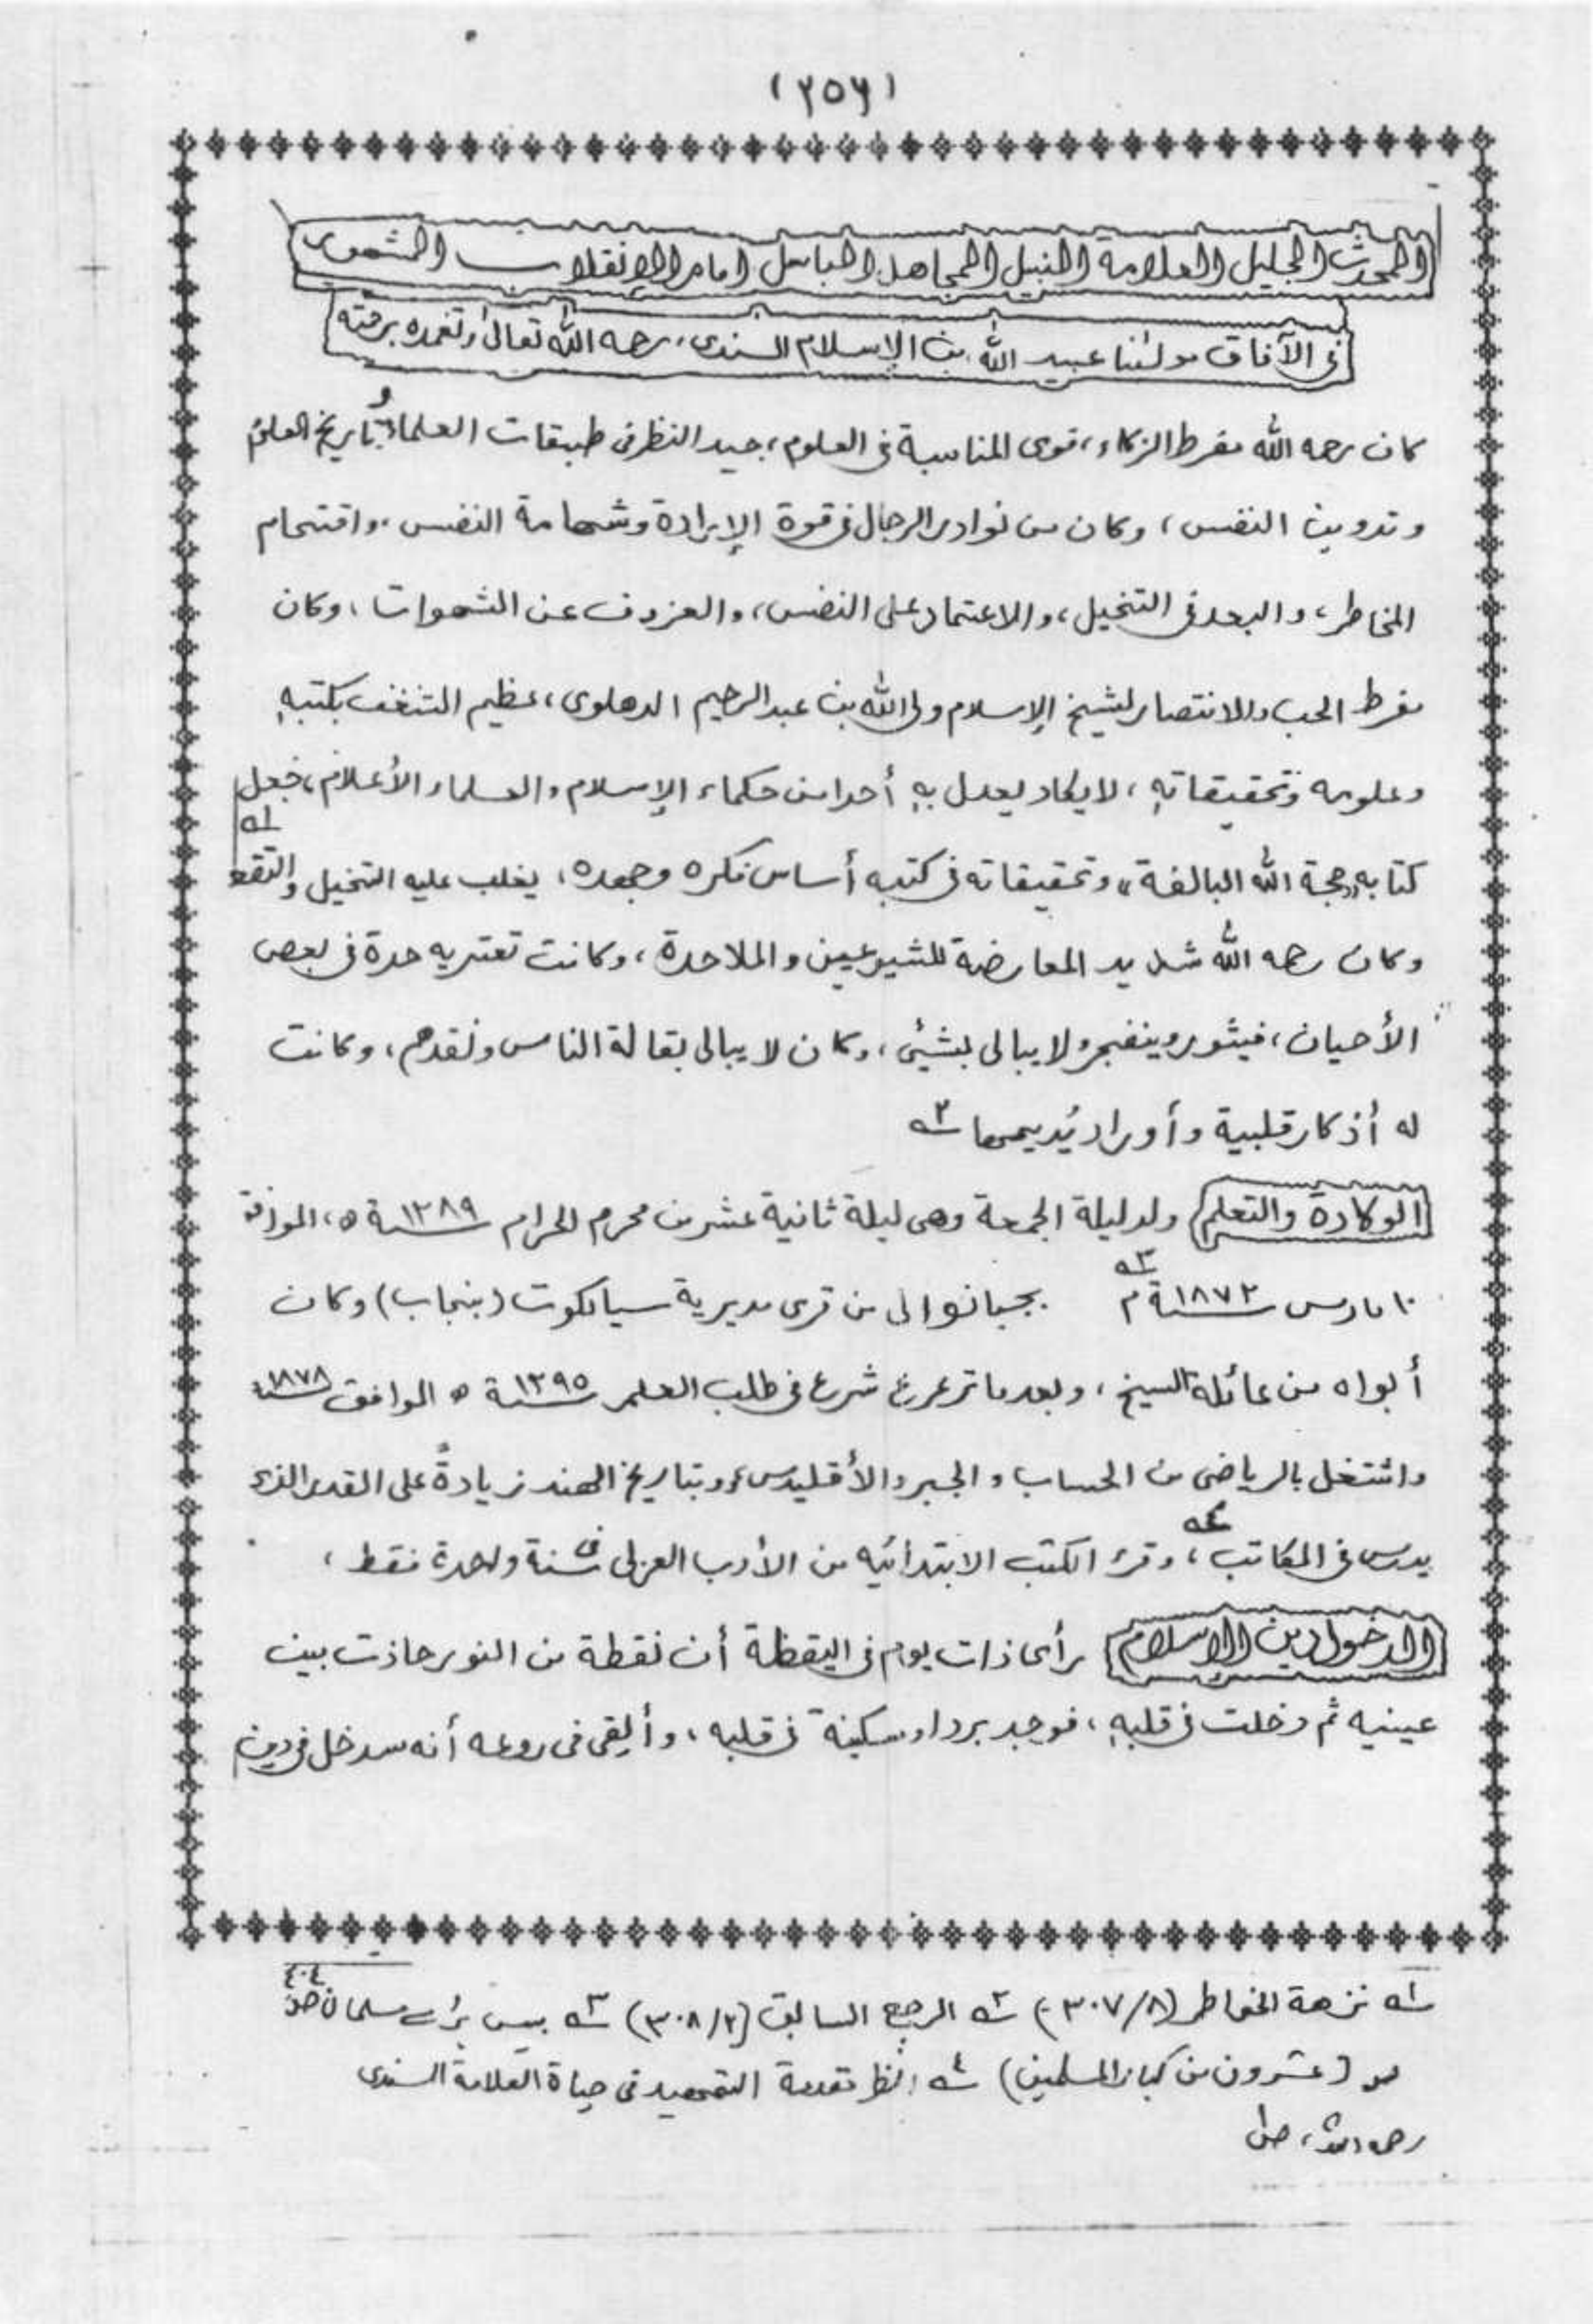 (٢٥٦)
المحدث الجليل العلامة النبيل المجاهد الباسل امام الإنقلاب المشهور
فى الآفاق مولٰنا عبيد الله بن الإسلام السندى، رحمه الله تعالىٰ وتغمده برحمته
كان رحمه الله مفرط الزكاء، قوى المناسبة فى العلوم، جيد النظر فى طبقات العلماء، و تاريخ العلم
و تدوين النفس، وكان من نوادر الرجال فى قوة الإرادة وشهامة النفس، واقتحام
المخاطر، والبعد فى التخيل، والاعتماد على النفس، والعزوف عن الشهوات، وكان
مفرط الحب والانتصار لشيخ الإسلام ولى الله بن عبد الرحيم الدهلوى، عظيم الشغف بكتبهٖ
وعلومه وتحقيقاتهٖ، لا يكاد يعدل بهٖ أحدا من حكماء الإسلام والعلماء الأعلام، فجعل
كتابه «حجة الله البالغة» وتحقيقاته فى كتبه أساس فكره وجهده، يغلب عليه التخيل والتقعر ١ه
وكان رحمه الله شديد المعارضة للشيوعيين والملاحدة، وكانت تعتريه حدة فى بعض
الأحيان، فيثور وينفجر ولا يبالى بشيئ، وكان لا يبالى بقالة الناس ونقدهم، وكانت
له أذكار قلبية وأوراد يُديمها ٢ه
الولادة والتعلم ولد ليلة الجمعة وهى ليلة ثانية عشر من محرم الحرام ١٢٨٩ سنة ه، الموافق
١٠ مارس ١٨٧٢ سنة م ٣ه بجيانوالى من قرى مديرية سيالكوت (بنجاب) وكان
أبواه من عائلة السيخ، وبعد ما ترعرع شرع فى طلب العلم ١٢٩٥ سنة ه الموافق ١٨٧٨ سنة
واشتغل بالرياضى من الحساب والجبر والأقليدس، وبتاريخ الهند زيادةً على القدر الذى
يدرس فى المكاتب ٤ه، وقرء الكتب الابتدائيه من الأدب العربى فى سنة واحدة فقط،
الدخول دين الإسلام رأى ذات يوم فى اليقظة أن نقطة من النور حاذت بين
عينيه ثم دخلت فى قلبهٖ، فوجد بردا وسكينة فى قلبه، وألقى فى روعه أنه سدخل فى دين
١ه نزهة الخواطر (٣٠٧/٨) ٢ه المرجع السابق (٣٠٨/٢) ٣ه بيس بڑے مسلمان ص ٤٠٤
(عشرون من كبار المسلمين) ٤ه انظر تقدمة التمهيد فى حياة العلامة السندى
رحمه الله، ص